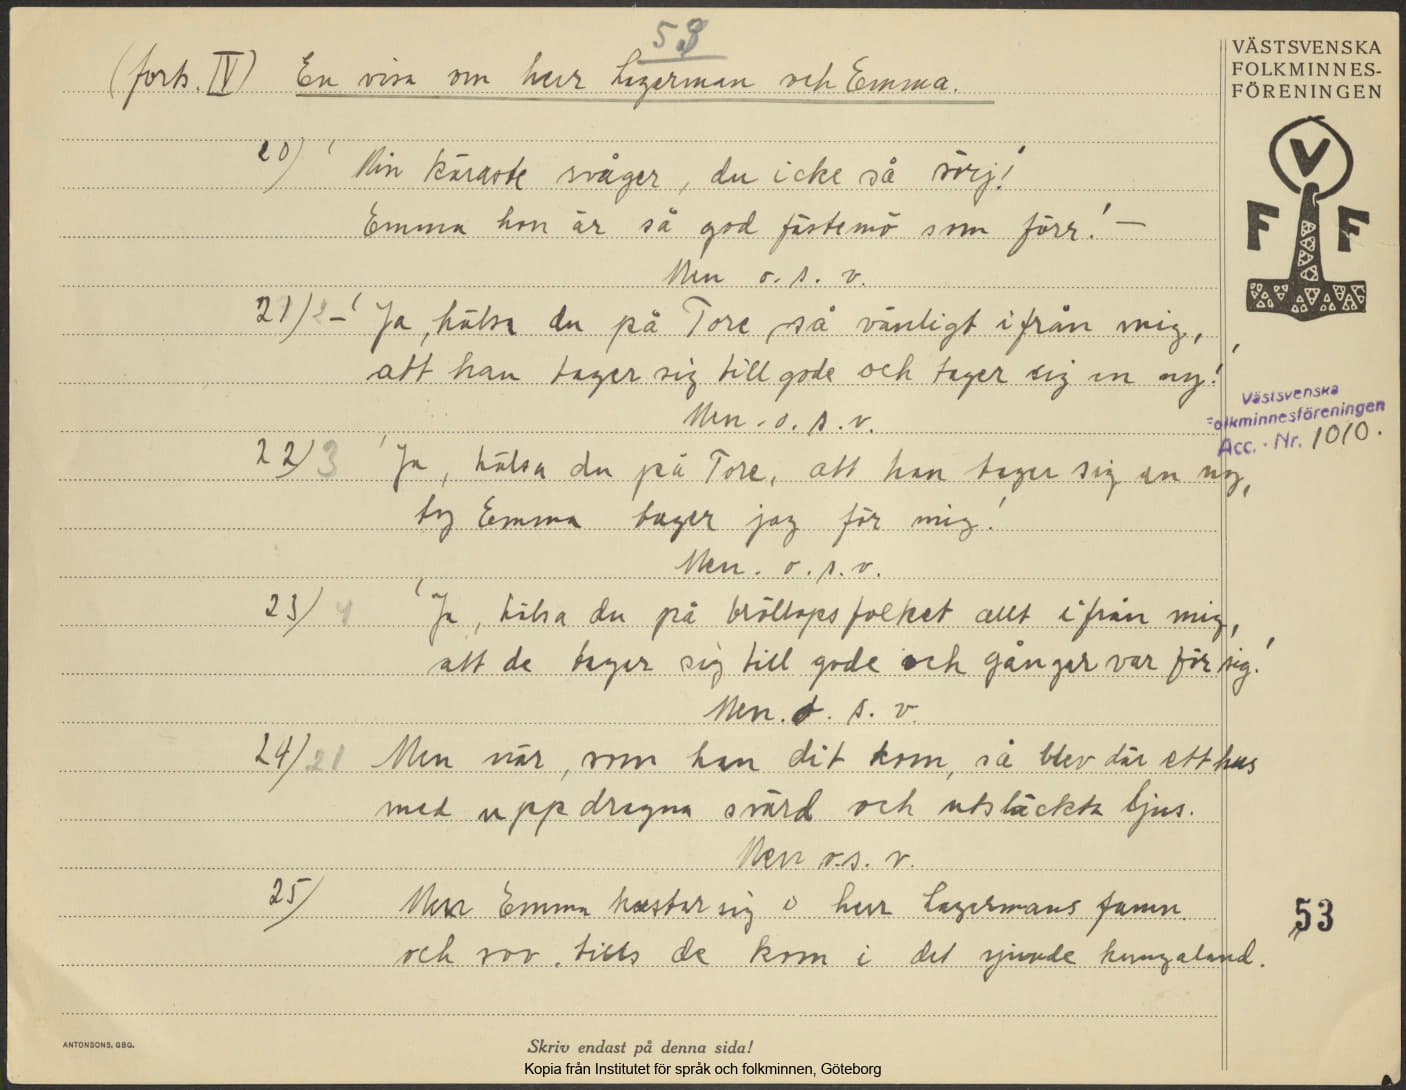 53
(forts. IV) En visa om herr Lagerman och Emma.
VÄSTSVENSKA
FOLKMINNES-
FÖRENINGEN
V
F F
20) ' Min käraste svåger, du icke så sörj!'
Emma hon är så god fästemö som förr! —
Men o. s. v.
21) 2 – ' Ja, hälsa du på Tore så vänligt ifrån mig,
att han tager sig till gode och tager sig en ny!'
Men. o. s. v.
Västsvenska
Folkminnesföreningen
Acc. - Nr. 1010.
22) 3 ' Ja, hälsa du på Tore, att han tager sig en ny,
ty Emma tager jag för mig!'
Men. o. s. v.
23) 4 ' Ja, hälsa du på bröllopsfolket allt ifrån mig,
att de tager sig till gode och gånger var för sig!'
Men. o. s. v.
24) 21 Men när, som han dit kom, så blev där ett hus
med uppdragna svärd och utsläckta ljus.
Men o. s. v.
25) Men Emma kastar sig i herr Lagermans famn
och sov tills de kom i det sjunde kungaland.
53
ANTONSONS. GBG.
Skriv endast på denna sida!
Kopia från Institutet för språk och folkminnen, Göteborg